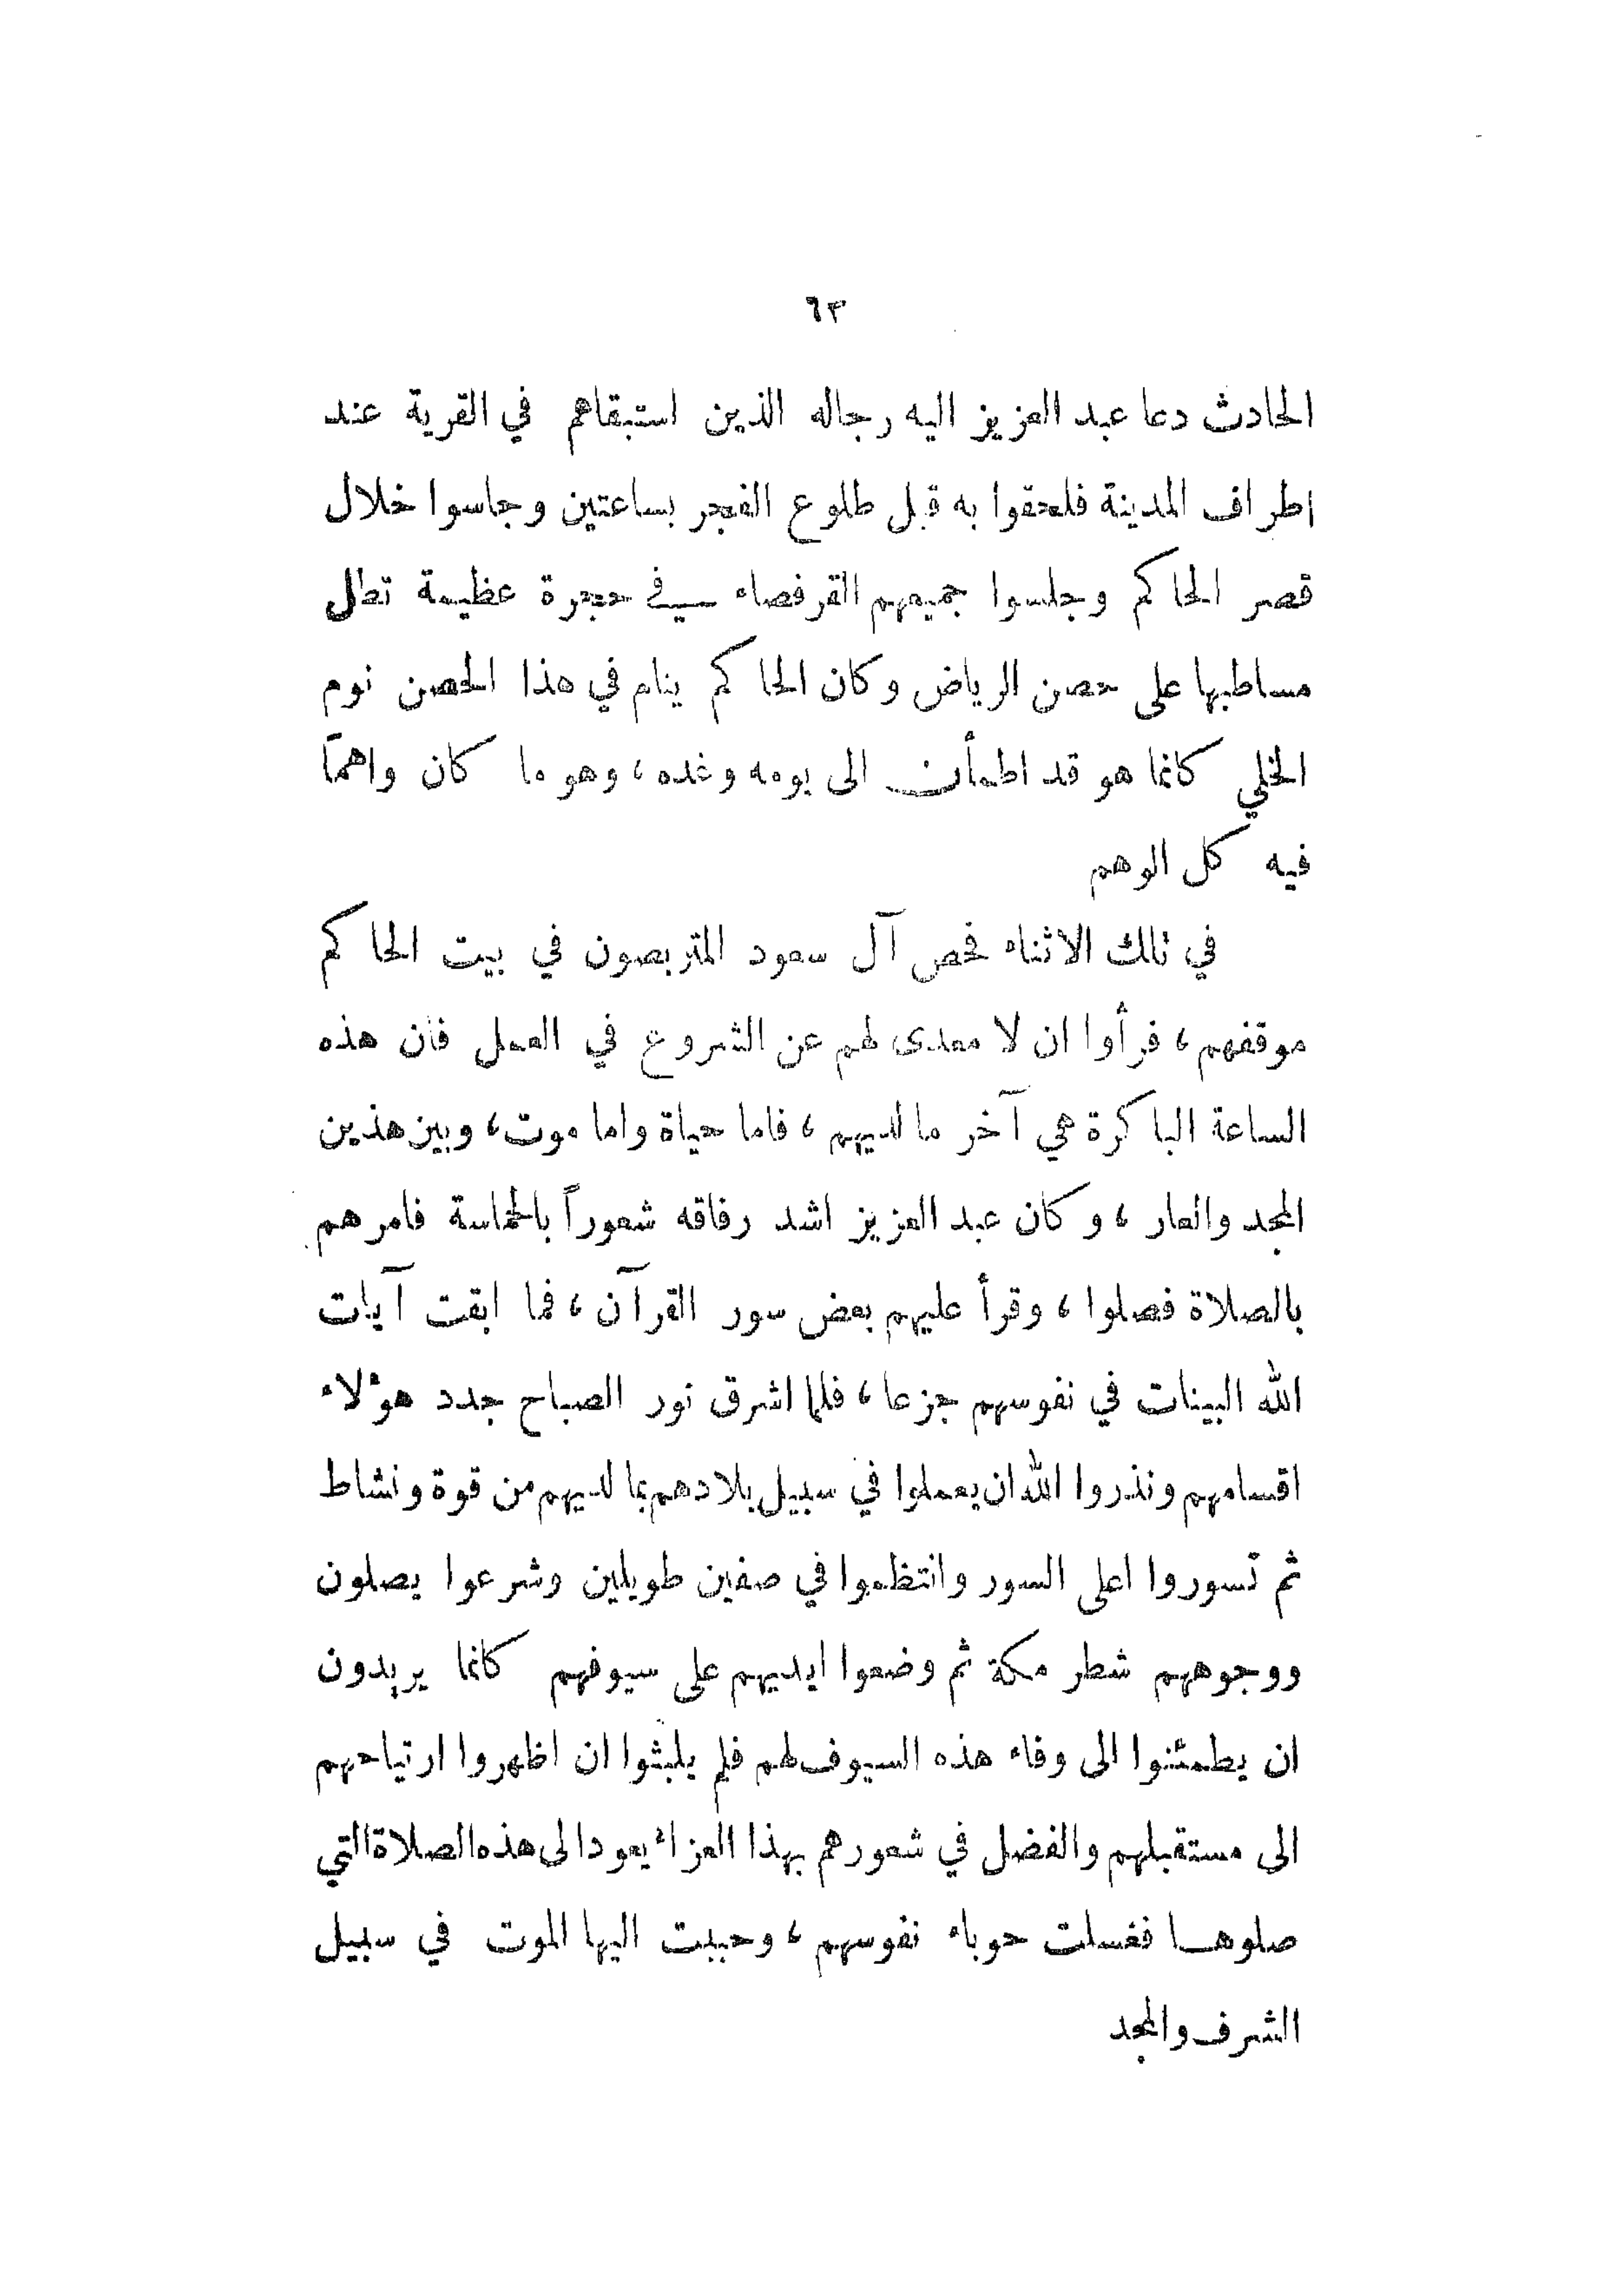 ٦٣
الحادث دعا عبد العزيز اليه رجاله الذين استبقاهم في القرية عند
اطراف المدينة فلحقوا به قبل طلوع الفجر بساعتين وجاسوا خلال
قصر الحاكم وجلسوا جميعهم القرفصاء في حجرة عظيمة تطل
مساطبها على حصن الرياض وكان الحاكم ينام في هذا الحصن نوم
الخلي كانما هو قد اطمأن الى يومه وغده، وهو ما كان واهماً
فيه كل الوهم
في تلك الاثناء فحص آل سعود المتربصون في بيت الحاكم
موقفهم، فرأوا ان لا معدى لهم عن الشروع في العمل فان هذه
الساعة الباكرة هي آخر ما لديهم، فاما حياة واما موت، وبين هذين
المجد والعار، وكان عبد العزيز اشد رفاقه شعوراً بالحماسة فامرهم
بالصلاة فصلوا، وقرأ عليهم بعض سور القرآن، فما ابقت آيات
الله البينات في نفوسهم جزعا، فلما اشرق نور الصباح جدد هؤلاء
اقسامهم ونذروا الله ان يعملوا في سبيل بلادهم بما لديهم من قوة ونشاط
ثم تسوروا اعلى السور وانتظموا في صفين طويلين وشرعوا يصلون
ووجوههم شطر مكة ثم وضعوا ايديهم على سيوفهم كانما يريدون
ان يطمئنوا الى وفاء هذه السيوف لهم فلم يلبثوا ان اظهروا ارتياحهم
الى مستقبلهم والفضل في شعورهم بهذا العزاء يعود الى هذه الصلاة التي
صلوها فغسلت حوباء نفوسهم، وحببت اليها الموت في سبيل
الشرف والمجد